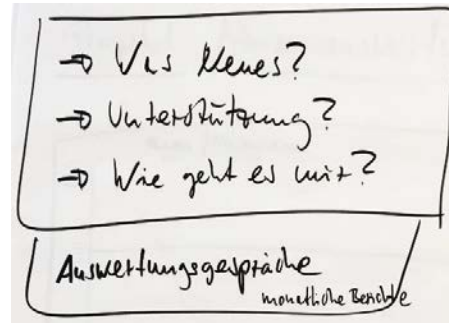 → Was Neues?
→ Unterstützung?
→ Wie geht es mir?
Auswertungsgespräche
monatliche Berichte